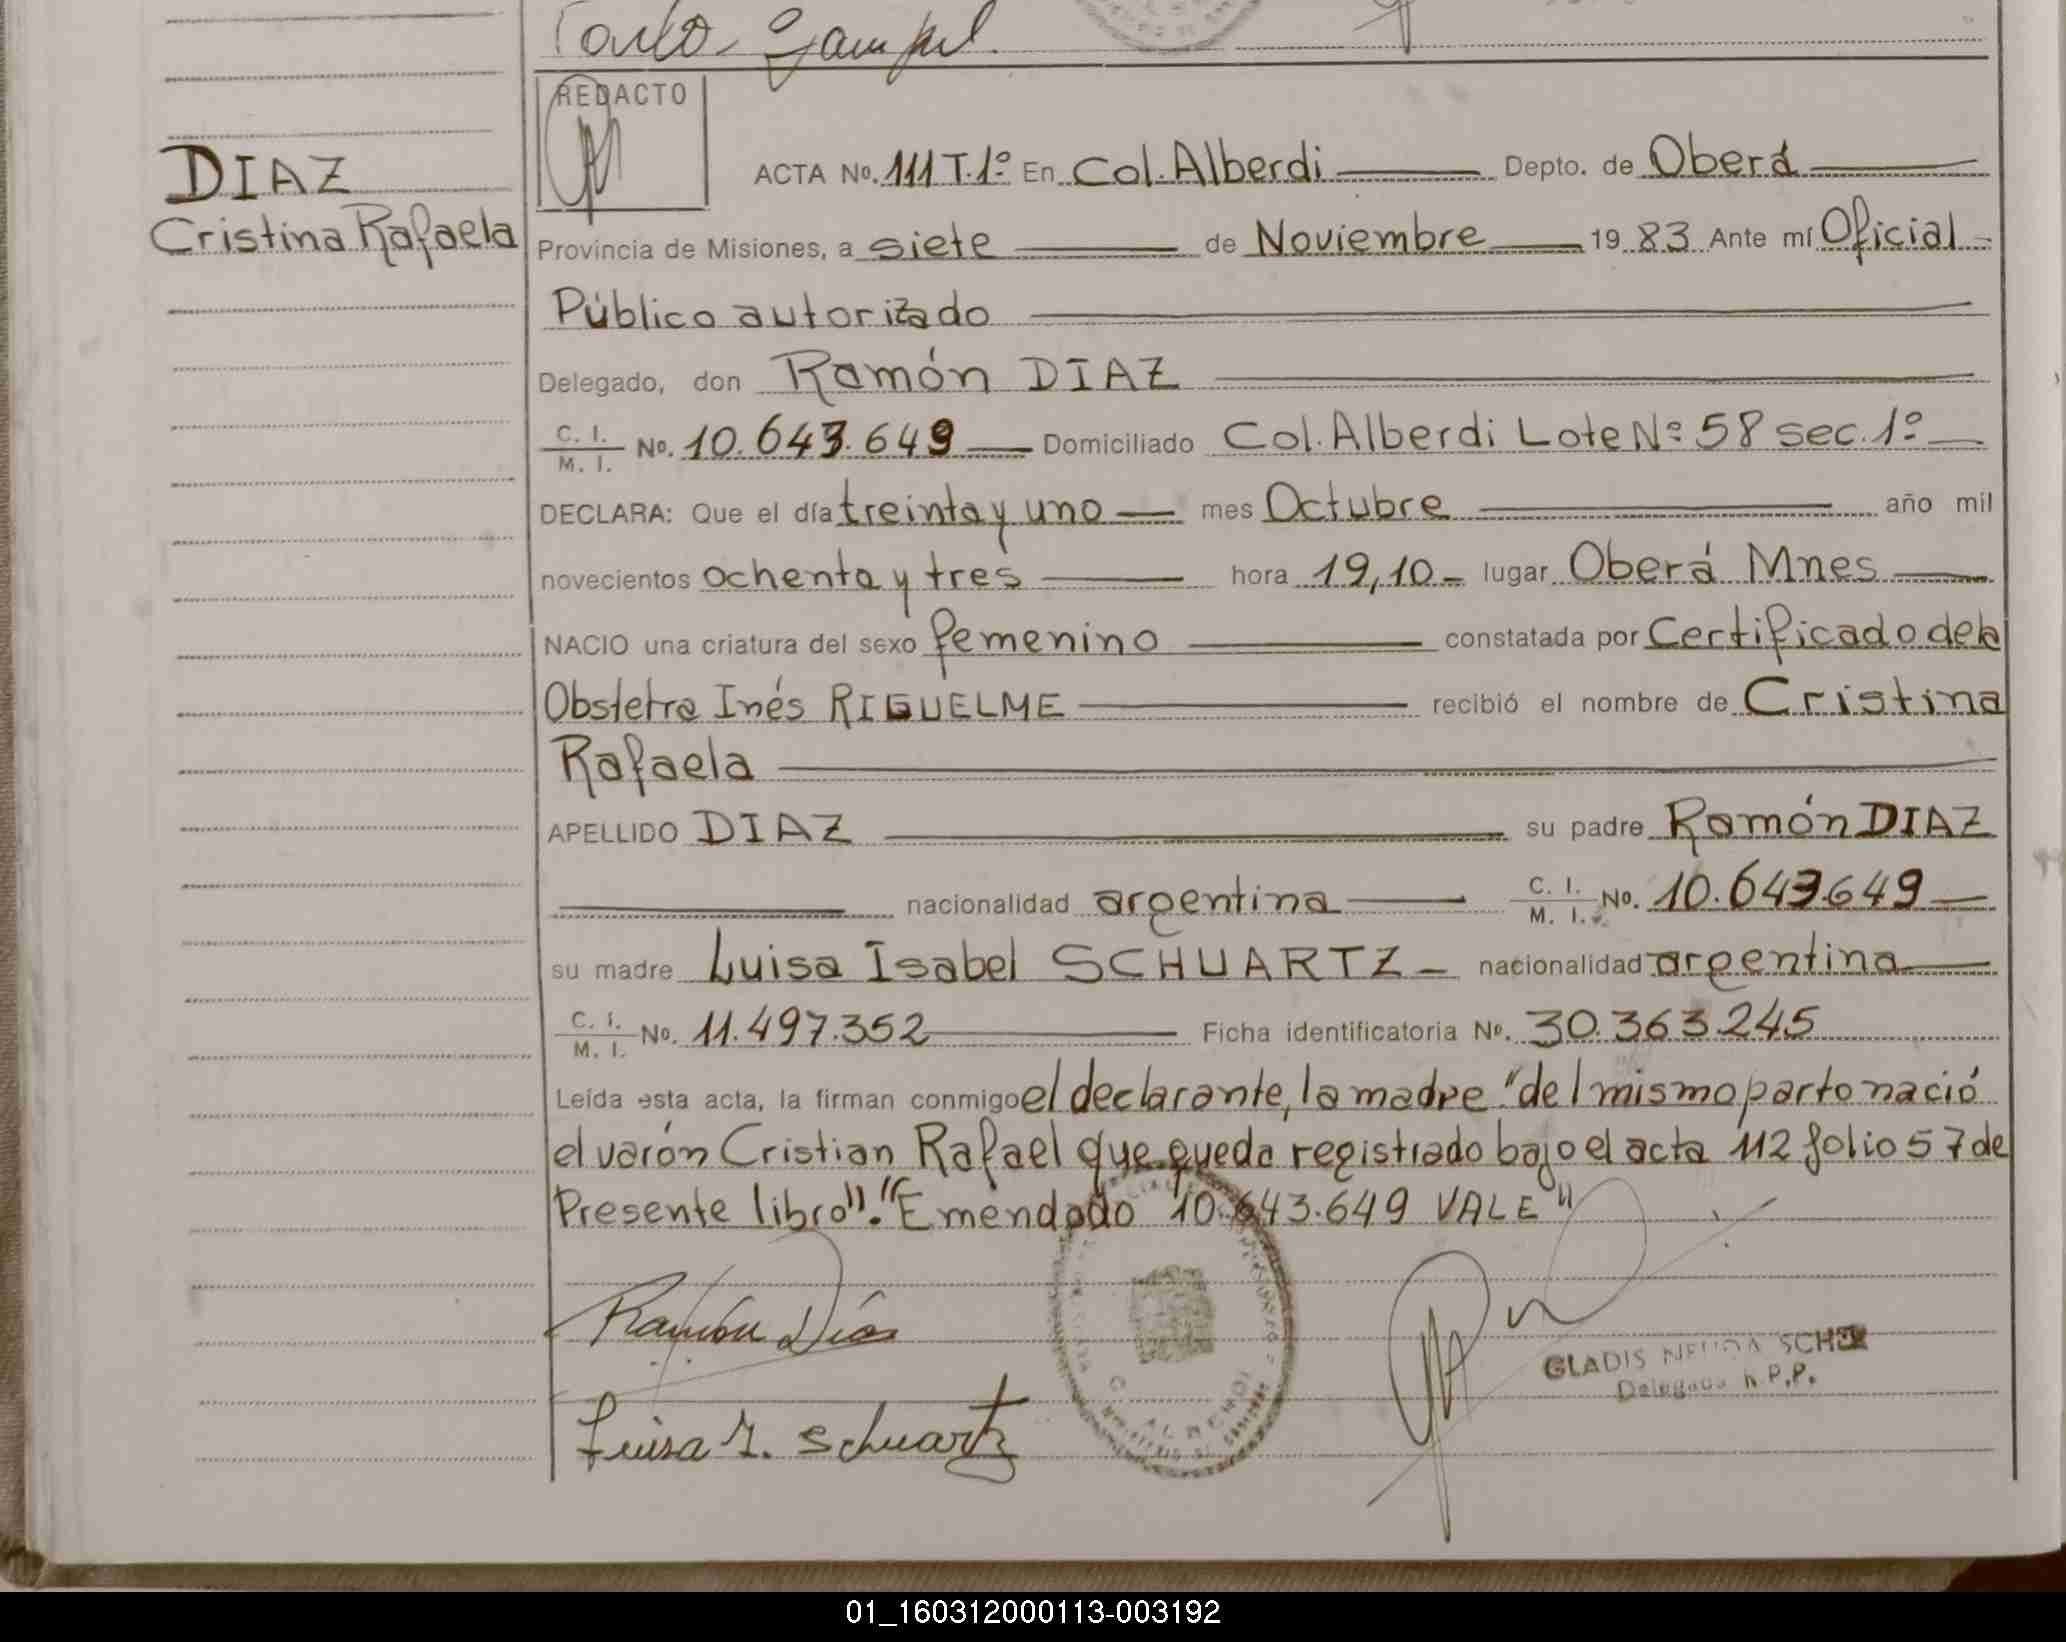 REDACTO
DIAZ
Cristina Rafaela
ACTA No. 111 T.1º En Col. Alberdi Depto. de Oberá
Provincia de Misiones, a siete de Noviembre 19 83 Ante mí Oficial
Público autorizado
Delegado, don Ramón DIAZ
C. I. / M. I. No. 10.643.649 Domiciliado Col. Alberdi Lote Nº 58 sec. 1º
DECLARA: Que el día treinta y uno mes Octubre año mil
novecientos ochenta y tres hora 19,10 lugar Oberá Mnes
NACIO una criatura del sexo femenino constatada por Certificado de la
Obstetra Inés RIQUELME recibió el nombre de Cristina
Rafaela
APELLIDO DIAZ su padre Ramón DIAZ
nacionalidad argentina C. I. / M. I. No. 10.643.649
su madre Luisa Isabel SCHUARTZ nacionalidad argentina
C. I. / M. I. No. 11.497.352 Ficha identificatoria No. 30.363.245
Leída esta acta, la firman conmigo el declarante, la madre "del mismo parto nació
el varón Cristian Rafael que queda registrado bajo el acta 112 folio 57 de
Presente libro". "Emendado 10.643.649 VALE"
Ramón Días
Luisa I. Schuartz
GLADIS
Delegada R.P.P.
ALBERDI
01_160312000113-003192